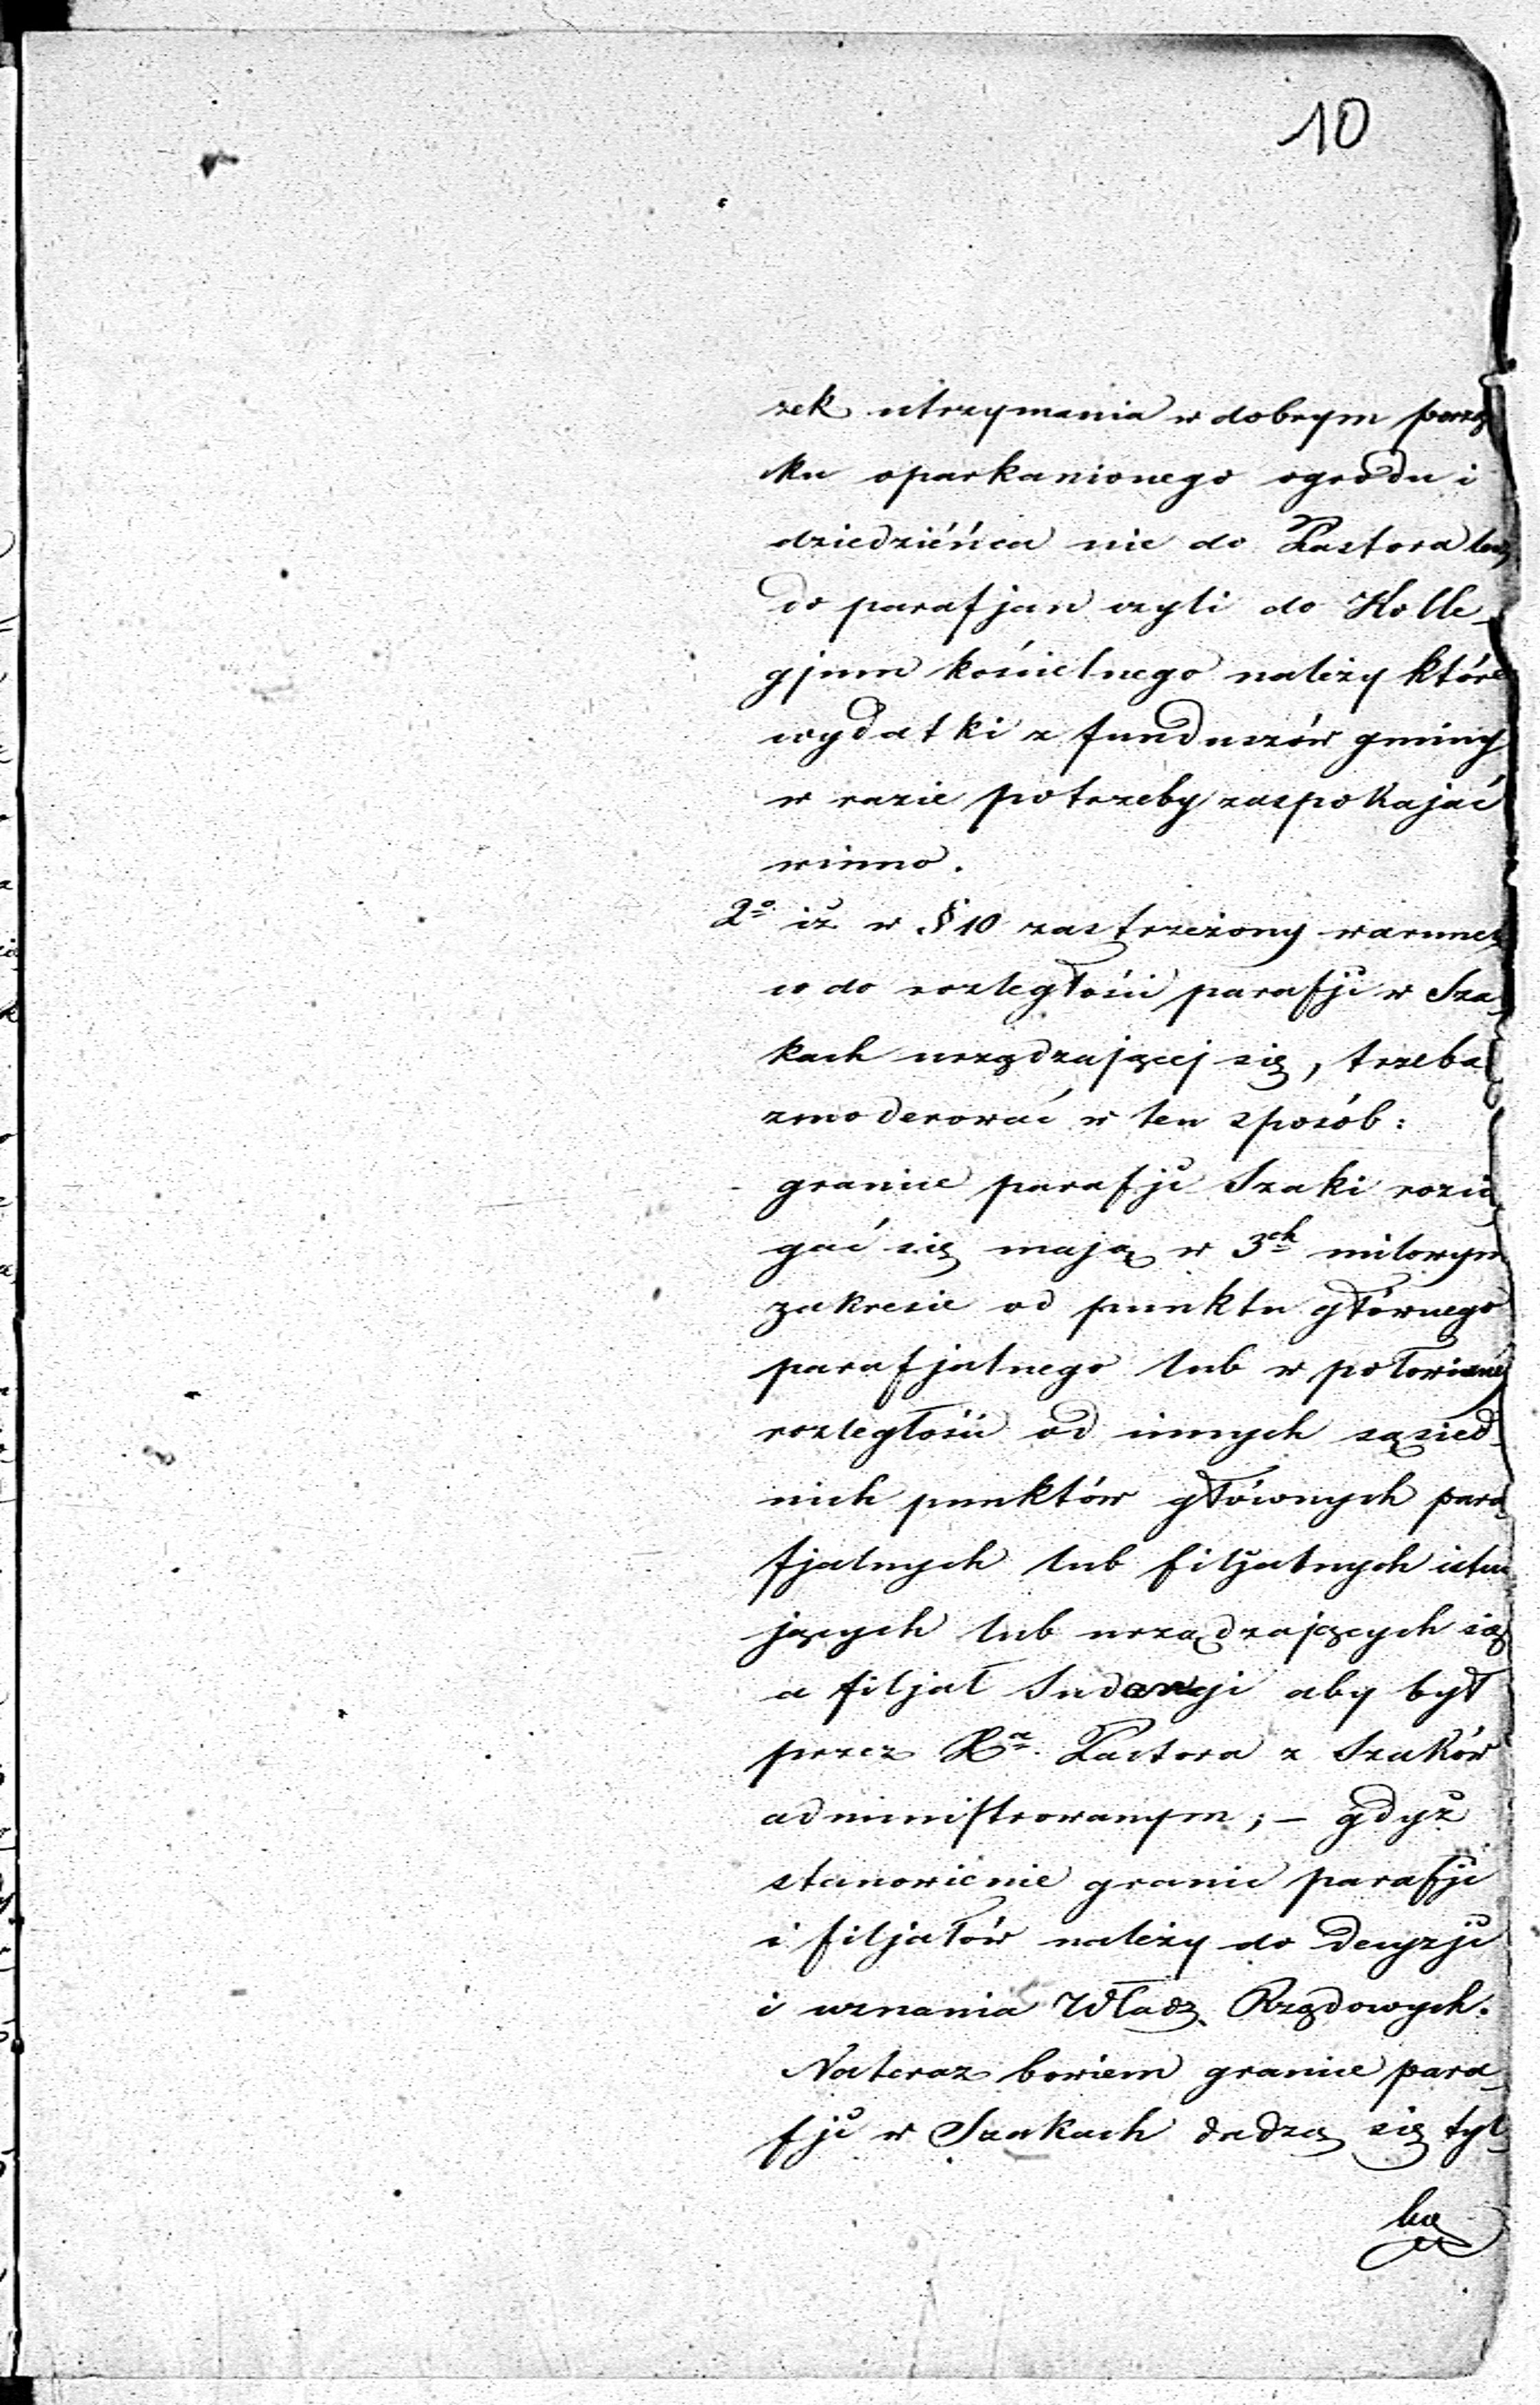 10
zek utrzymania w dobrym porzą
ku oparkanionego ogrodu i
dziedzińca nie do Pastora lecz
do parafjan czyli do Kolle-
gjum kościelnego należy które
wydatki z funduszów gminy
w razie potrzeby zaspokajać
winno.
2º iż w § 10 zastrzeżony warunek
co do rozległości parafji w Sza
kach urządzającej się, trzeba
zmoderować w ten sposób:
granice parafji Szaki rozcią
gać się mają w 3ch milowym
zakresie od punktu głównego
parafjalnego lub w połowicznej
rozległości od innych sąsied-
nich punktów głównych para-
fjalnych lub filjalnych istnie
jących lub urządzających się
a filjał Sudargi aby był
przez Xa. Pastora z Szaków
administrowanym; – gdyż
stanowienie granic parafji
i filjałów należy do decyzji
i uznania Władz Rządowych.
Nateraz bowiem granice para-
fji w Szakach dadzą się tyl-
ko